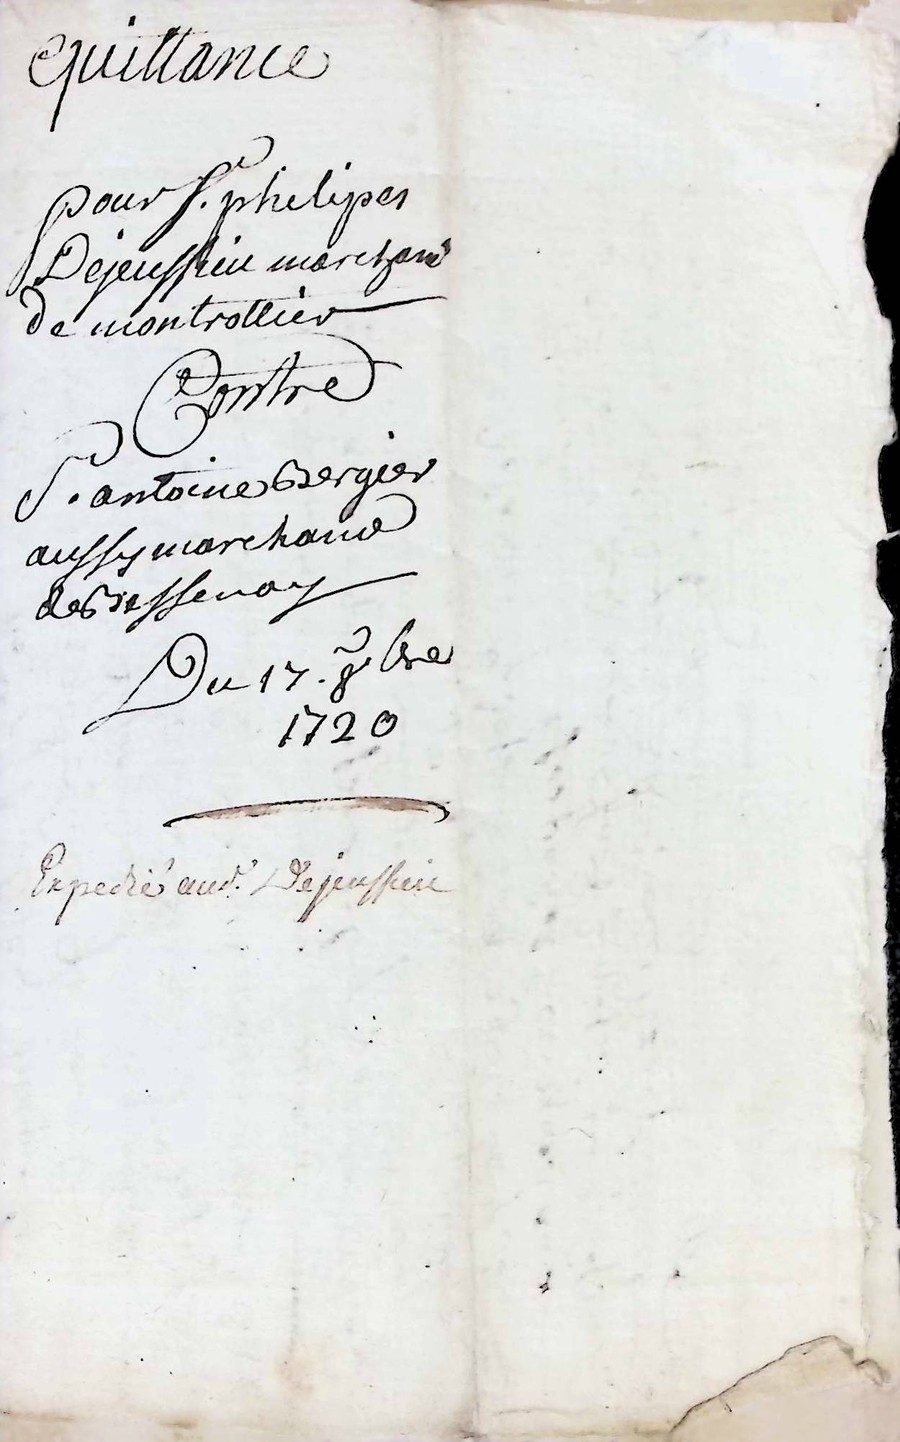 Quittance
pour Sr. phelipes
Dejeussieu marchand
de montrottier
Contre
Sr. antoine Bergier
aussy marchand
de Bessenay
Du 17. 8bre
1720
Expedié aud. Dejeussieu